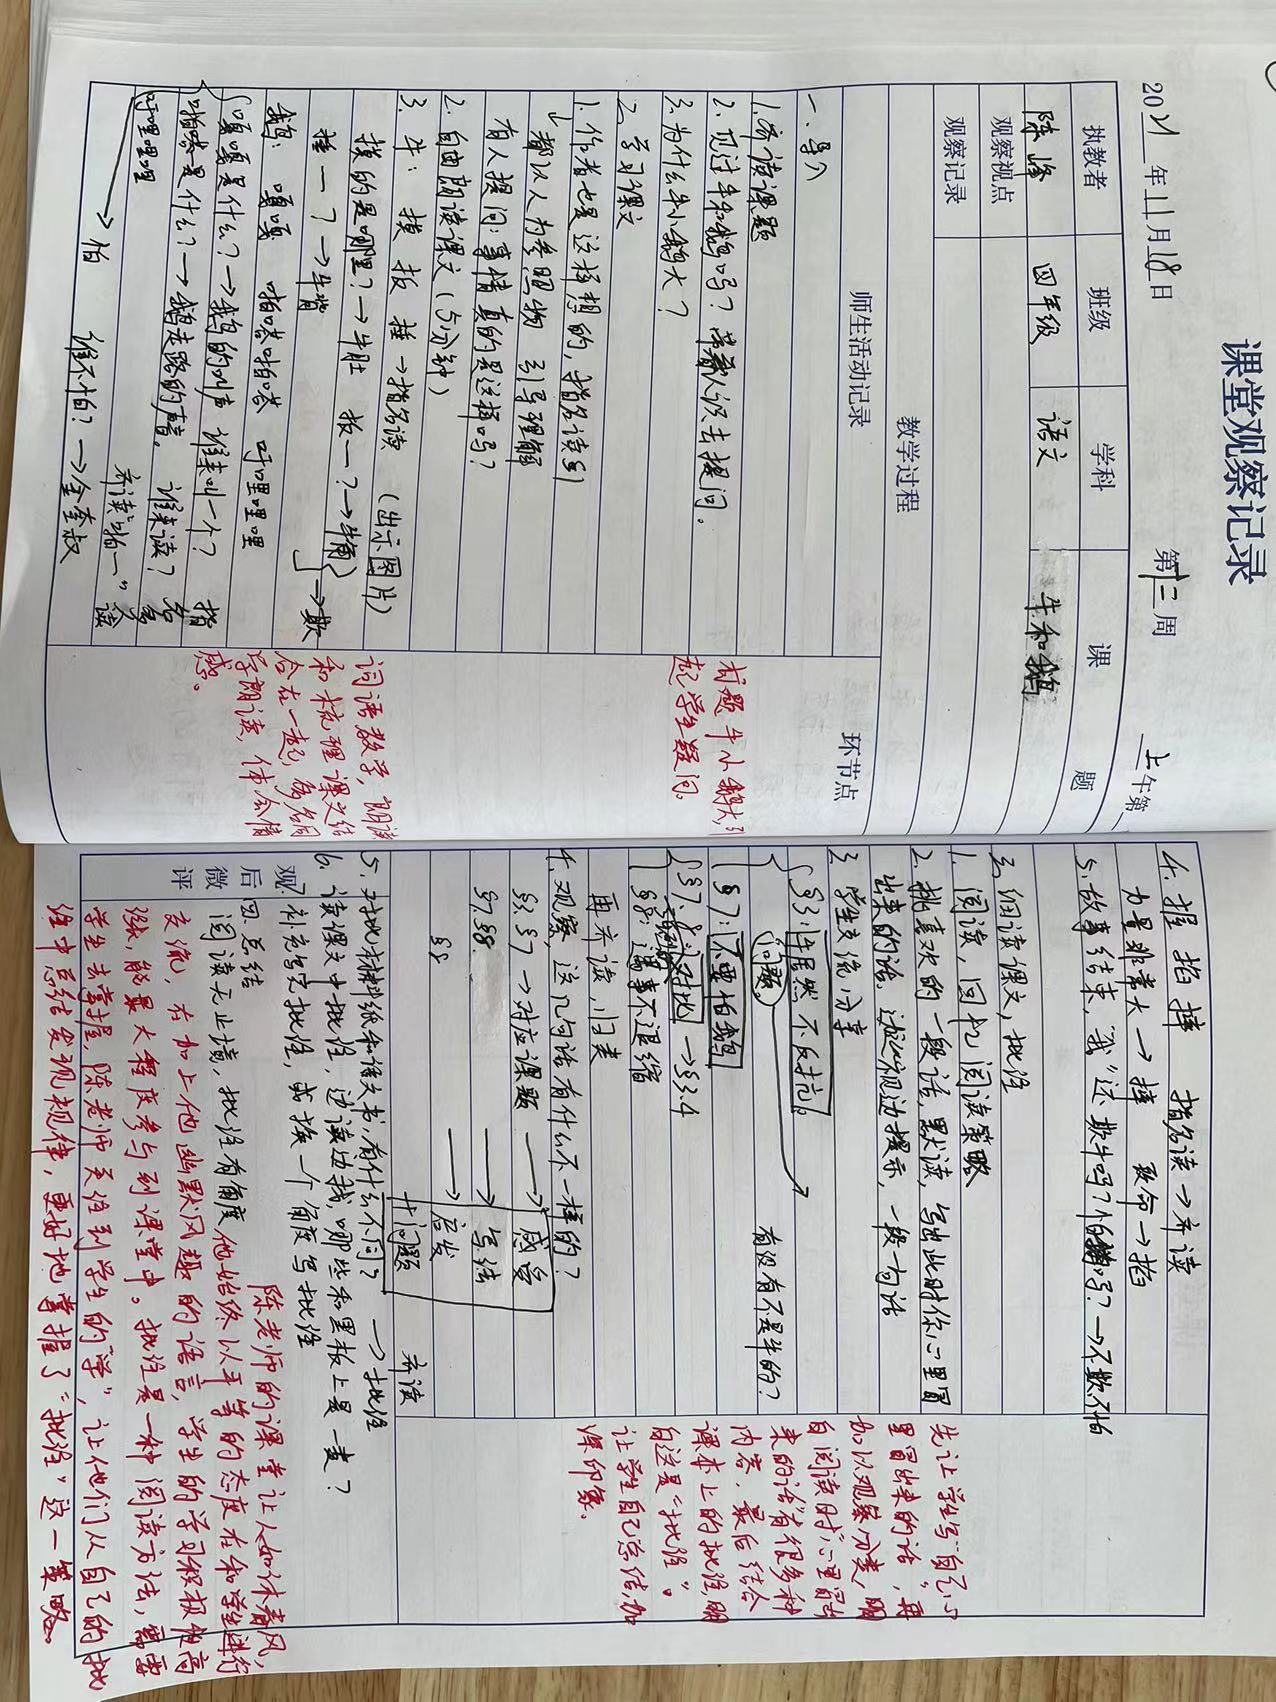 课堂观察记录
2021年11月18日 第十二周 上午第
执教者 班级 学科 课题
陈峰 四年级 语文 牛和鹅
观察视点
观察记录
教学过程
师生活动记录 环节点
一、导入
1. 齐读课题
2. 见过牛和鹅吗？带着认识去提问。
3. 为什么牛小鹅大？
课题牛小鹅大，引
起学生疑问。
二、学习课文
1. 作者也是这样想的，指名读句
↳都以人为参照物 引导理解
有人提问：事情真的是这样吗？
2. 自由朗读课文（5分钟）
3. 牛：摸 扳 捶→指名读 （出示图片）
摸的是哪里？→牛肚 扳一？→牛角
捶一？→牛背 →欺
鹅：嘎嘎 啪嗒啪嗒 吁哩哩哩
嘎嘎是什么？→鹅的叫声 谁来叫一个？ 指
啪嗒是什么？→鹅走路的声音。 谁来读？ 名
吁哩哩哩 齐读“拍一” 多读
→怕 谁不怕？→金奎叔
词语教学，朗读
和梳理课文结
合在一起，多名同
学朗读，体会情
感。
4. 握 掐 摔 指名读→齐读
力量非常大→摔 致命→掐
5. 故事结束，我“还欺牛吗？怕鹅吗？→不欺不怕
三、细读课文，批注
1. 阅读，回忆阅读策略
2. 挑喜欢的一段话，默读，写出此时你心里冒
出来的话。巡视边提示，一段一句话
3. 学生交流，分享
§3：牛居然不反抗。
（问题） 有没有不是牛的？
§7：不要怕鹅
§7：对比→§3.4
§8：遇事不退缩
再齐读，归类
4. 观察，这几句话有什么不一样的？
§3.§7→对应课题 → 感受
§7.§8. → 写法
§8 → 启发
+问题 齐读
5. 对比批注纸和课文书，有什么不同？ →批注
6. 读课文中批注，边读边找，哪些和黑板上是一类？
补充写完批注，或换一个角度写批注
四、总结
阅读无止境，批注有角度
先让学生写“自己心
里冒出来的话”，再
加以观察分类，明
白阅读时“心里冒出
来的话”有很多种
内容，最后结合
课本上的批注，明
白这是“批注”。
让学生自己总结，加
深印象。
观后微评
陈老师的课堂让人如沐春风，
他始终以平等的态度在和学生进行
交流，在加上他幽默风趣的语言，学生的学习积极性高
涨，能最大程度参与到课堂中。批注是一种阅读方法，需要
学生去掌握，陈老师关注到学生的“学”，让他们从自己的批
注中总结发现规律，更好地掌握了“批注”这一策略。